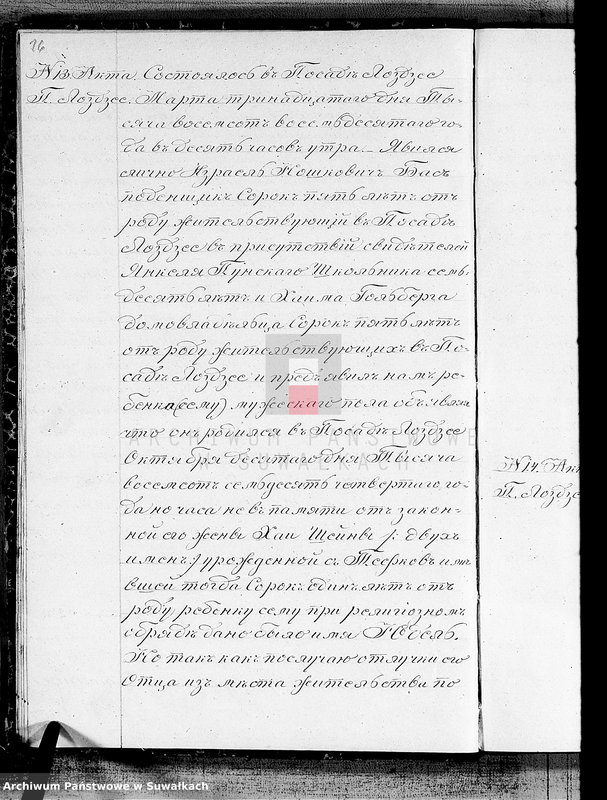 16
№13. Акта. Состоялось въ Посадѣ Лоздзее
П. Лоздзее. Марта тринадцатаго дня Ты-
сяча восемсотъ восемьдесятаго го-
да въ десять часовъ утра. Явился
лично Израель Іошковичъ Басъ
поденщикъ Сорокъ пять лѣтъ отъ
роду жительствующій въ Посадѣ
Лоздзее въ присутствіи свидѣтелей
Янкеля Пунскаго Школьника семь-
десять лѣтъ и Хаима Гольберга
домовладѣльца Сорокъ пять лѣтъ
отъ роду жительствующихъ въ По-
садѣ Лоздзее и предъявилъ намъ ре-
бенка (сему) мужескаго пола объявляя
что онъ родился въ Посадѣ Лоздзее
Октября десятаго дня Тысяча
восемсот семьдесять четвертаго го-
да но часа не въ памяти отъ закон-
ной его жены Хаи Шейны /: двухъ
именъ :/ урожденной съ имѣ
вшей тогда Сорокъ одинъ лѣтъ отъ
роду ребенку сему при религіозномъ
обрядѣ дано было имя
Но такъ какъ послучаю отлучки его
Отца изъ мѣста жительства по
№14. Ак
П. Лоздзе
ARCHIWUM PAŃSTWOWE W
SUWAŁKACH
Archiwum Państwowe w Suwałkach